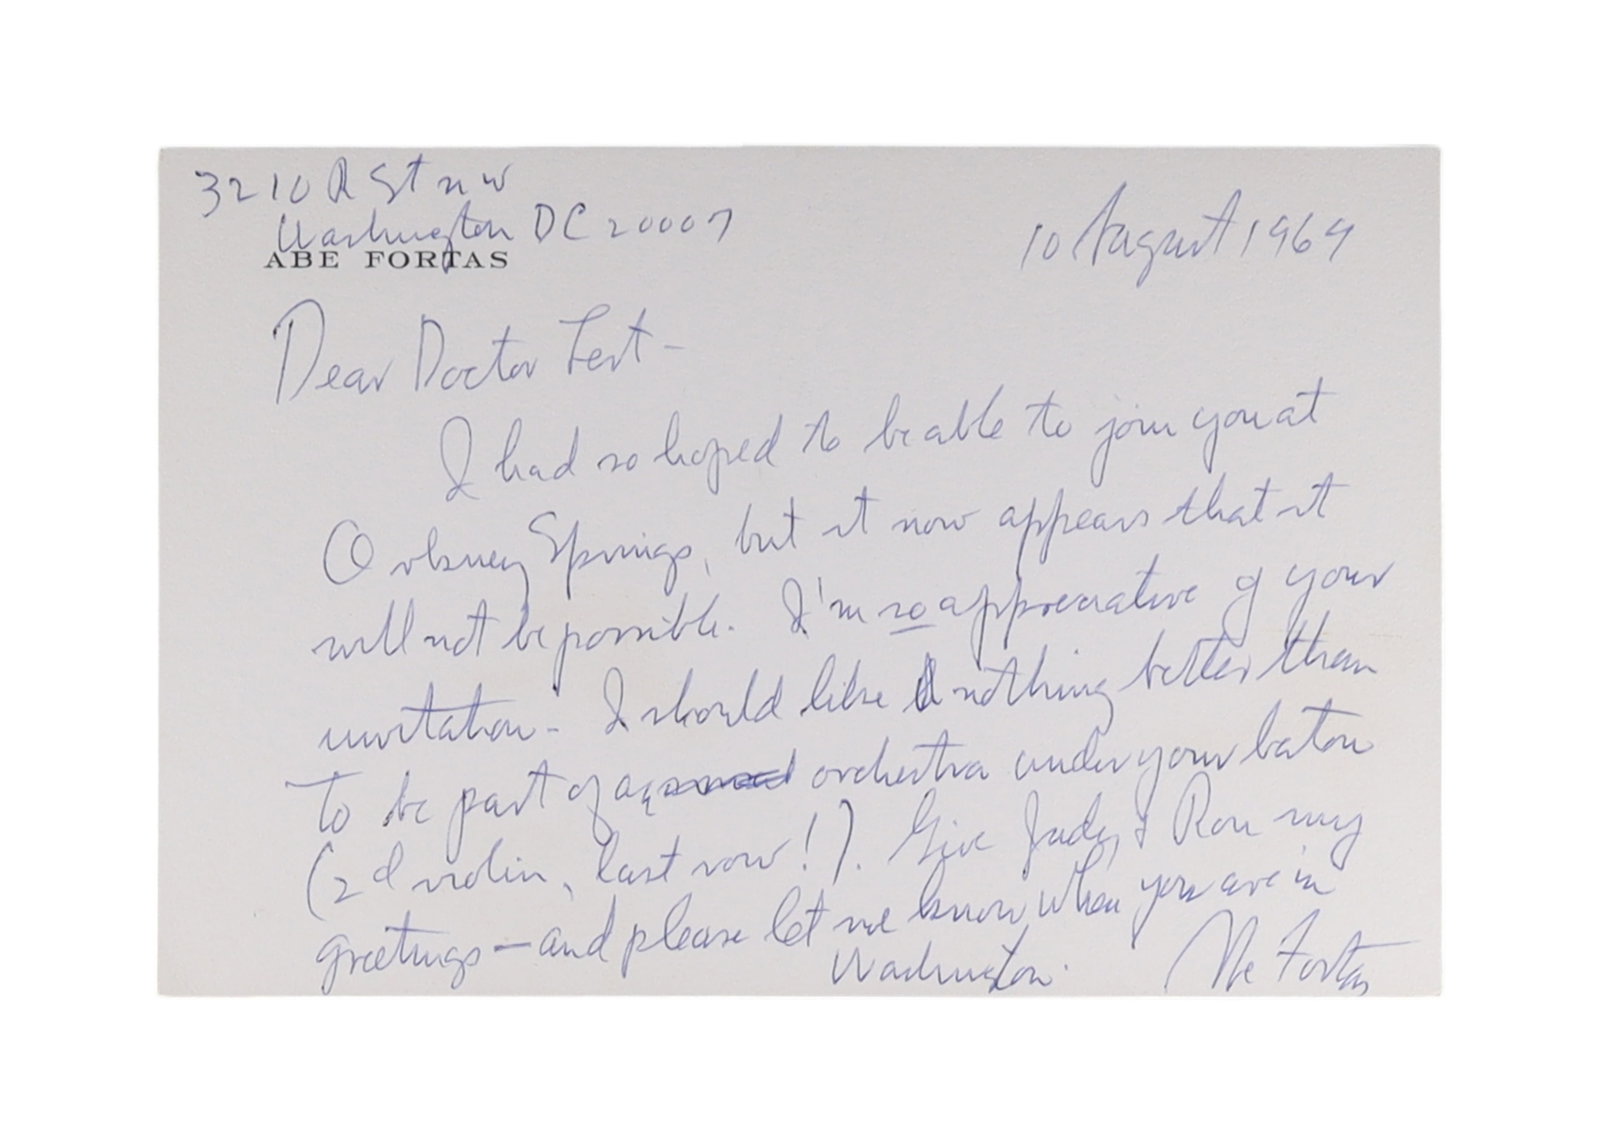 3210 R St NW
Washington DC 20007
ABE FORTAS
10 August 1969
Dear Doctor Lert -
I had so hoped to be able to join you at
Orkney Springs, but it now appears that it
will not be possible. I'm so appreciative of your
invitation - I should like nothing better than
to be part of an orchestra under your baton
(2d violin, last row!). Give Judy & Ron my
greetings - and please let me know when you are in
Washington.
Abe Fortas